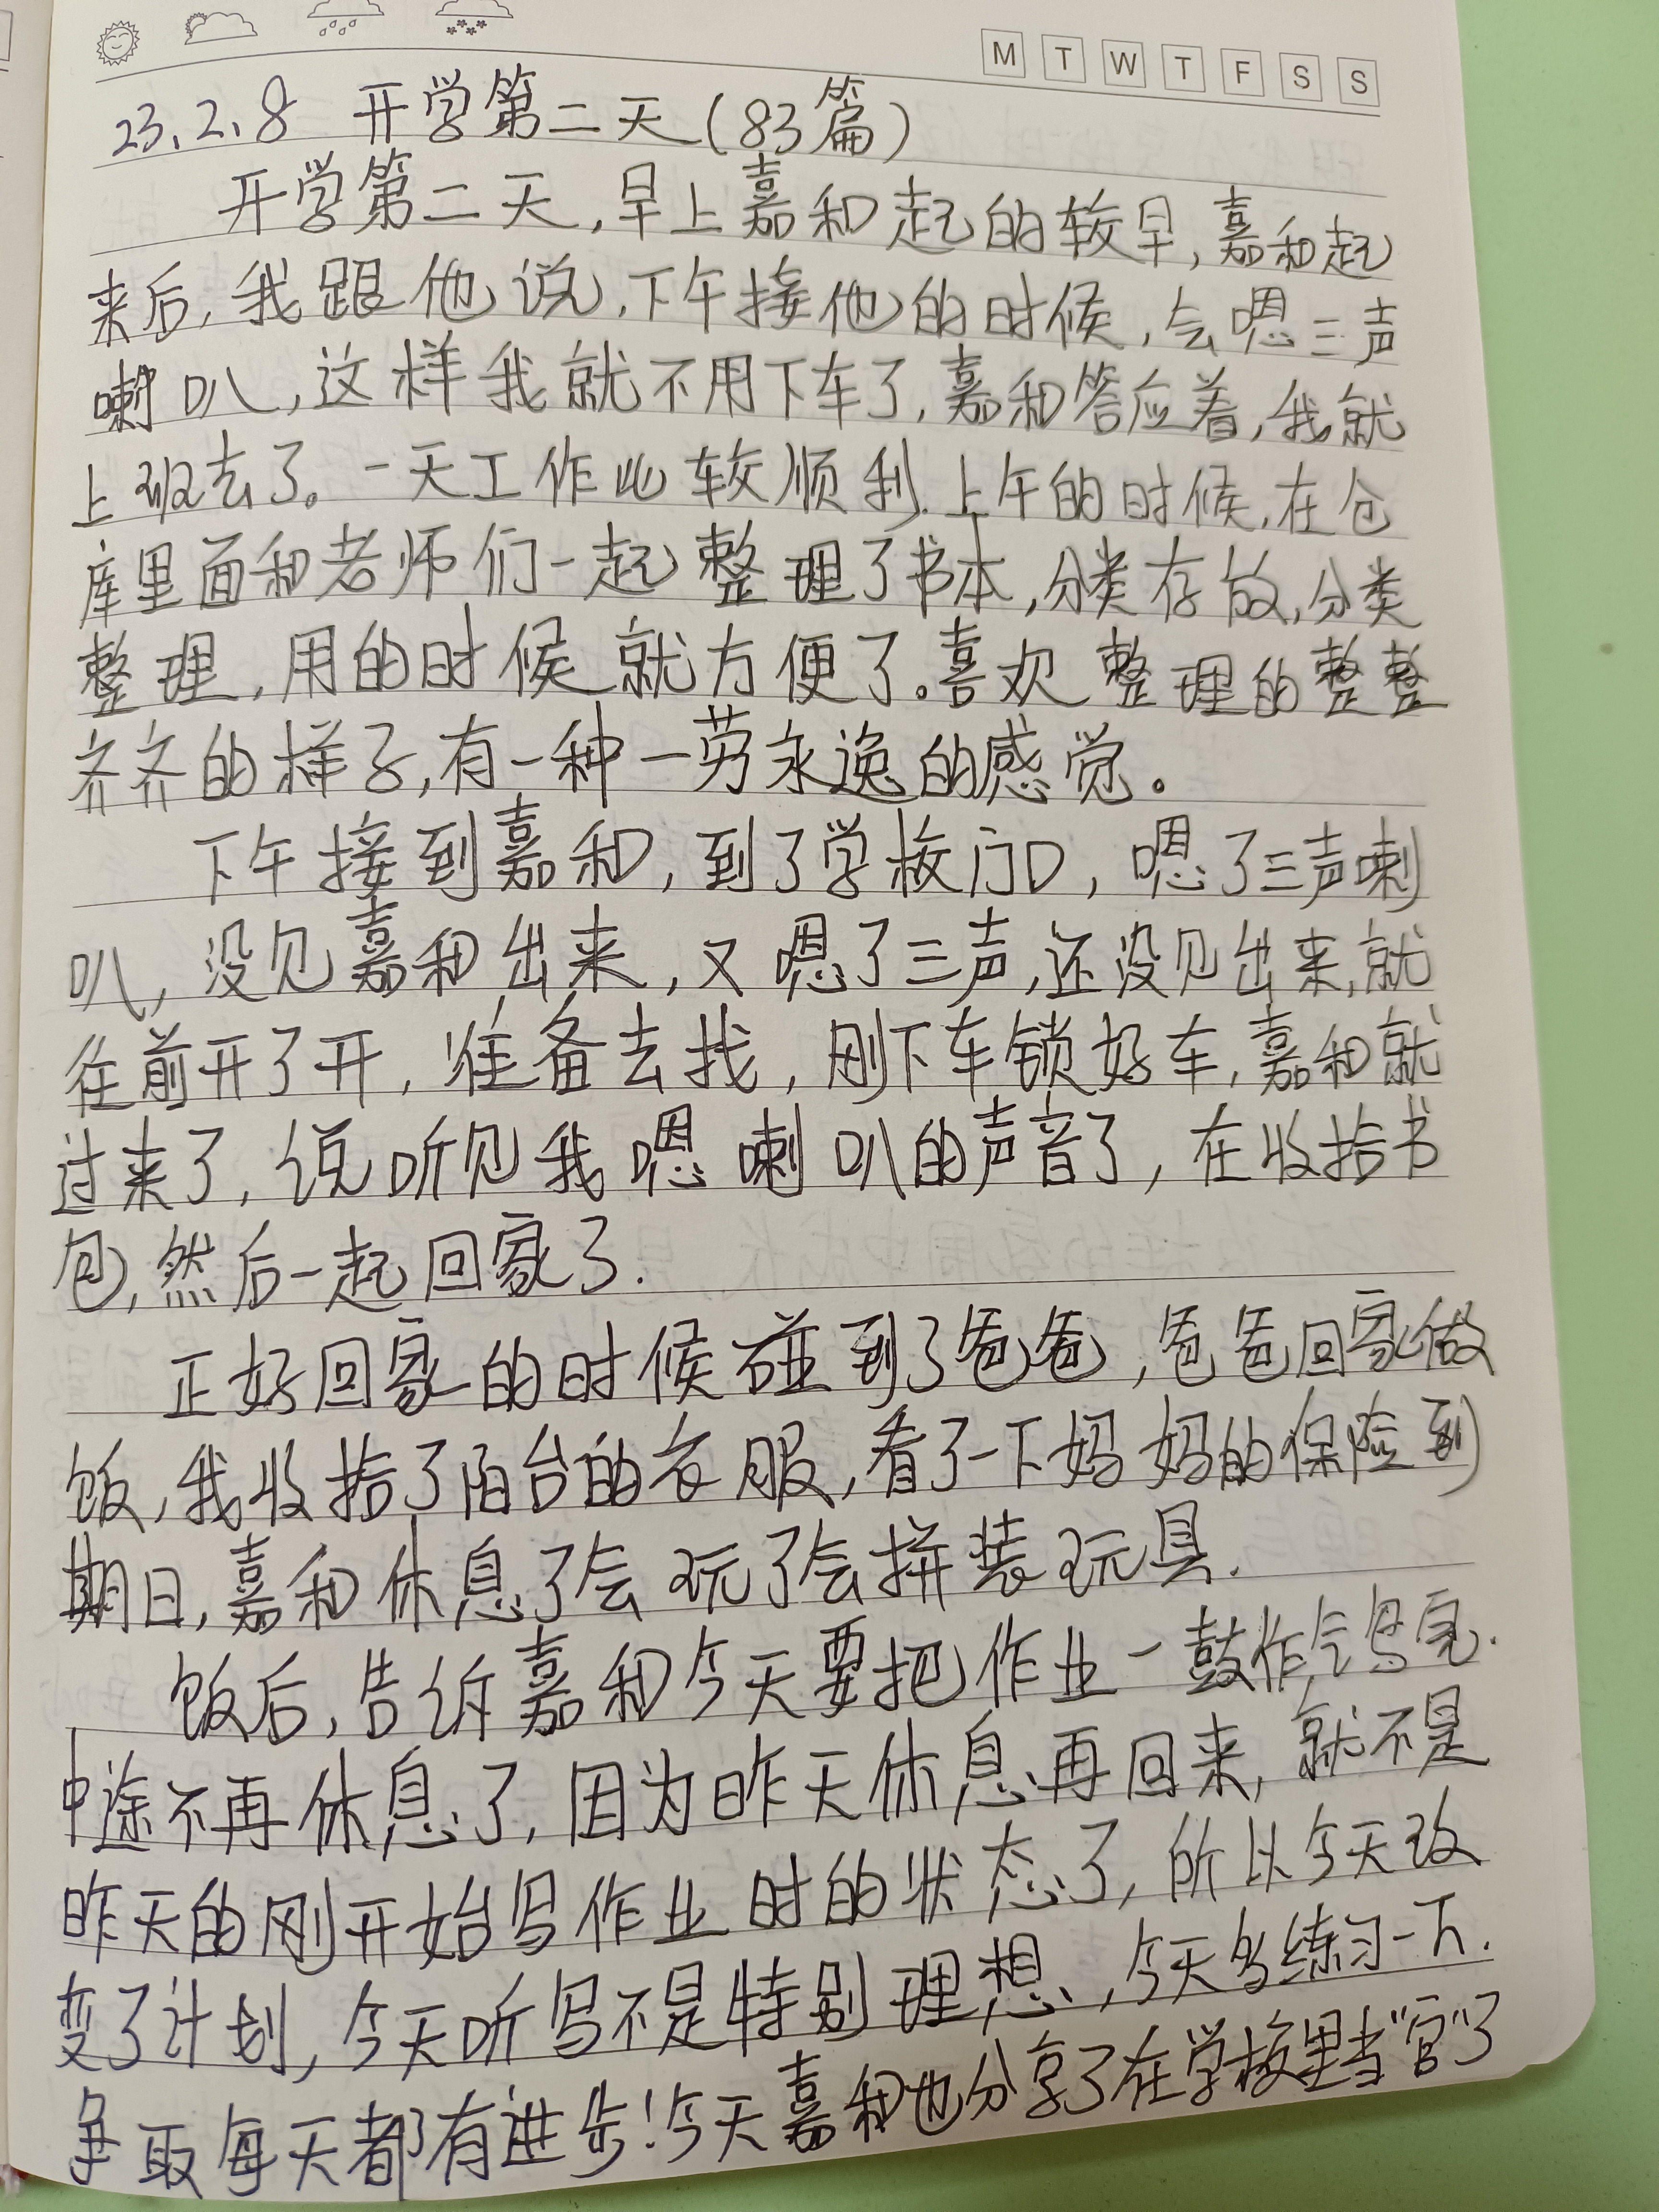 M T W T F S S
23.2.8 开学第二天(83篇)
开学第二天,早上嘉和起的较早,嘉和起
来后,我跟他说,下午接他的时候,会嗯三声
喇叭,这样我就不用下车了,嘉和答应着,我就
上班去了。一天工作比较顺利.上午的时候,在仓
库里面和老师们一起整理了书本,分类存放,分类
整理,用的时候就方便了。喜欢整理的整整
齐齐的样子,有一种一劳永逸的感觉。
下午接到嘉和,到了学校门口,嗯了三声喇
叭,没见嘉和出来,又嗯了三声,还没见出来,就
往前开了开,准备去找,刚下车锁好车,嘉和就
过来了,说听见我嗯喇叭的声音了,在收拾书
包,然后一起回家了.
正好回家的时候碰到了爸爸,爸爸回家做
饭,我收拾了阳台的衣服,看了一下妈妈的保险到
期日,嘉和休息了会玩了会拼装玩具.
饭后,告诉嘉和今天要把作业一鼓作气写完.
中途不再休息了,因为昨天休息再回来,就不是
昨天的刚开始写作业时的状态了,所以今天改
变了计划,今天听写不是特别理想,今天多练习一下.
争取每天都有进步!今天嘉和也分享了在学校里当"官"了